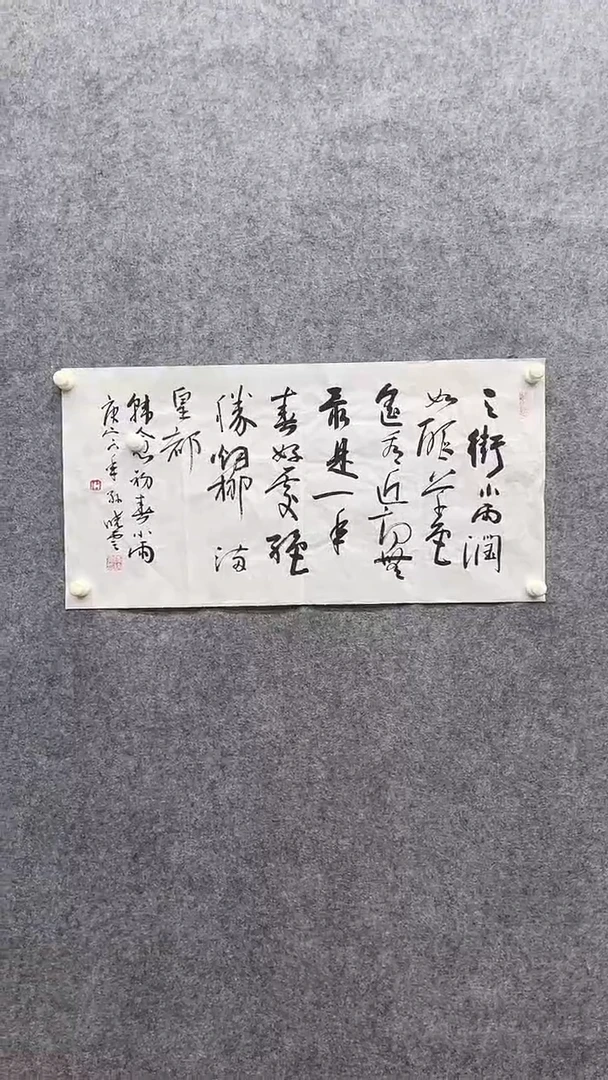 天街小雨润
如酥草色
遥看近却无
最是一年
春好处绝
胜烟柳满
皇都
韩愈初春小雨
庚子年孙晓云